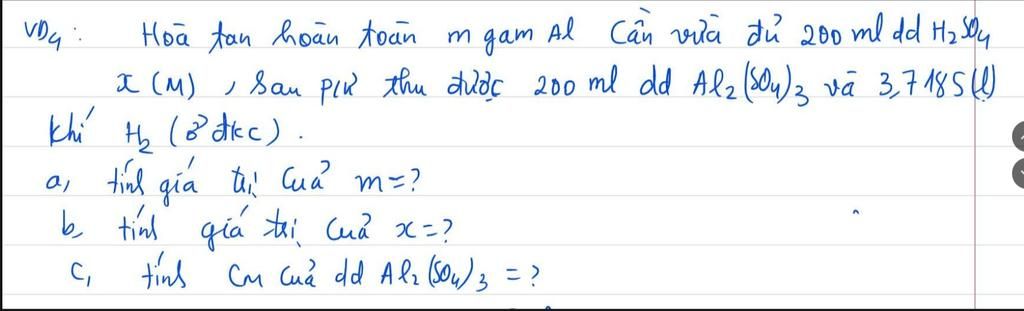 VD4: Hoà tan hoàn toàn m gam Al Cần vừa đủ 200 ml dd H₂SO₄
x (M), Sau pứ thu được 200 ml dd Al₂(SO₄)₃ và 3,7185 (l)
khí H₂ (ở đkc).
a, tính giá trị Của m=?
b, tính giá trị Của x=?
c, tính CM Của dd Al₂(SO₄)₃ = ?